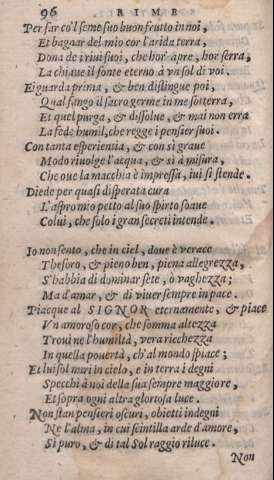 96 RIME
Per far co'l seme suo buon frutto in noi,
Et bagnar del mio cor l'arida terra,
Dona de i riui suoi, che hor'apre, hor serra,
La chiaue il fonte eterno à vn sol di voi.
Ei guarda prima, & ben distingue poi,
Qual fango il sacro germe in me sotterra,
Et quel purga, & dissolue, & mai non erra
La fede humil, che regge i pensier suoi.
Con tanta esperientia, & con sì graue
Modo riuolge l'acqua, & sì à misura,
Che oue la macchia è impressa, iui si stende.
Diede per quasi disperata cura
L'aspro mio petto al suo spirto soaue
Colui, che solo i gran secreti intende.
Io non sento, che in ciel, doue è verace
Thesoro, & pieno ben, piena allegrezza,
S'habbia di dominar sete, ò vaghezza;
Ma d'amar, & di viuer sempre in pace.
Piacque al SIGNOR eternamente, & piace
Vn amoroso cor, che somma altezza
Troui ne l'humiltà, vera ricchezza
In quella pouertà, ch'al mondo spiace;
Et lui sol miri in cielo, e in terra i degni
Specchi à noi della sua sempre maggiore,
Et sopra ogni altra gloriosa luce.
Non stan pensieri oscuri, obietti indegni
Ne l'alma, in cui scintilla arde d'amore,
Si puro, & di tal Sol raggio riluce.
Non